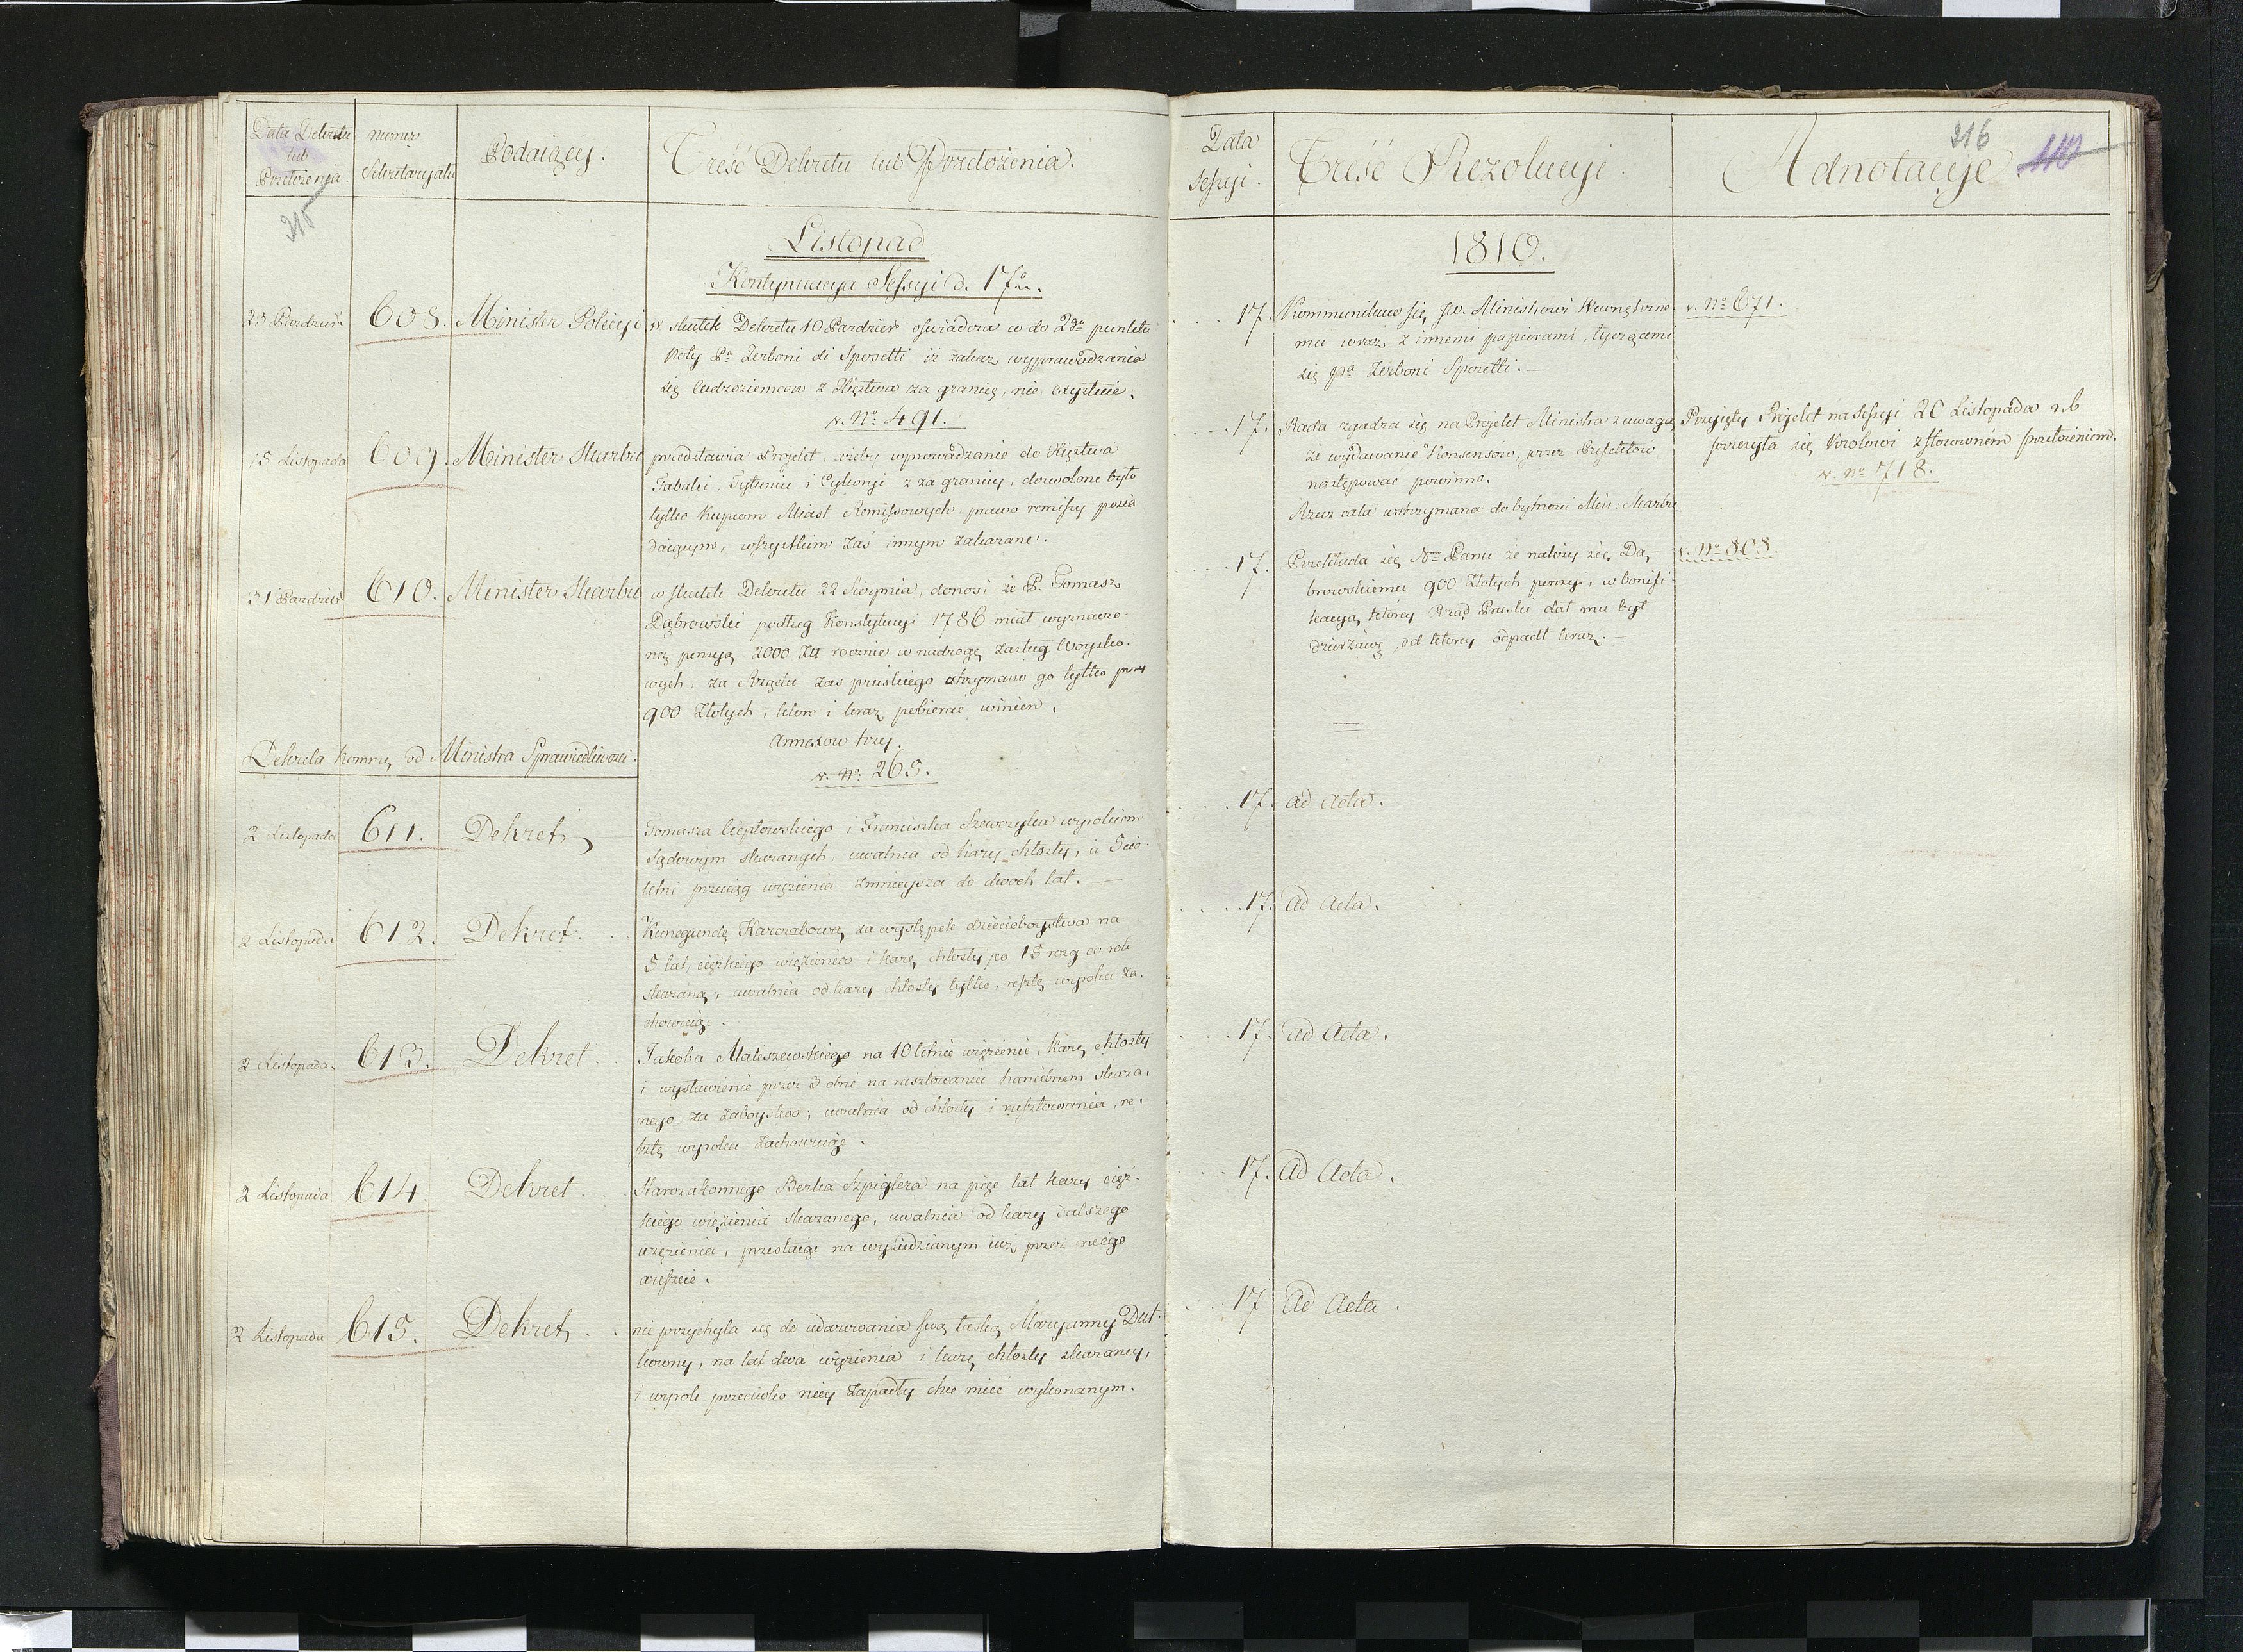 Data Dekretu
lub
Przełożenia.
numer
Sekretaryatu
Podaiący.
Treść Dekretu lub Przełożenia.
215
Listopad
Kontynuacya Sessyi d. 17a.
23 Pazdzier.
608.
Minister Policyi
w skutek Dekretu 10 Pazdzier. oswiadcza co do 2go punktu
Noty Pa Zerboni di Sposetti iż zakaz wyprawadzania
się Cudzoziemcow z Xięstwa za granicę, nie exystuie.
v. No 491.
15 Listopada
609.
Minister Skarbu
przedstawia Projekt, ażeby wprowadzanie do Xięstwa
Tabaki, Tytuniu i Cykoryi z zagranicy, dozwolone było
tylko Kupcom Miast Remissowych prawo remissy posia
daiącym, wszystkim zaś innym zakazane.
31 Pazdzier.
610.
Minister Skarbu
w skutek Dekretu 22 Sierpnia, donosi że P. Tomasz
Dąbrowski podług Konstytucyi 1786 miał wyznaczo-
ną pensyą 2000 Zł rocznie w nadgrogę zasług Woysko-
wych, za Rządu zas pruskiego utrzymano go tylko przy
900 Złotych, które i teraz pobierać winien.
Annexow trzy.
v. No 265.
Dekreta Kommu. od Ministra Sprawiedliwosci.
2 Listopada
611.
Dekret
Tomasza Cieplowskiego i Franciszka Szewczyka wyrokiem
Sądowym skazanych, uwalnia od kary chłosty, i 5cio-
letni przeciąg więzienia zmnieysza do dwoch lat. —
2 Listopada
612.
Dekret.
Kunegundę Karczabową za występek dzieciobóystwa na
5 lat, cięzkiego więzienia i karę chłosty po 15 rozg co rok
skazaną, uwalnia od kary chłosty tylko, resztę wyroku za-
chowuiąc.
2 Listopada.
613.
Dekret.
Jakoba Maliszewskiego na 10 letnie więzienie, karę chłosty
i wystawienie przez 3 dni na rusztowaniu haniebnem skaza-
nego za zaboystwo; uwalnia od chłosty i rusztowania, re-
sztę wyroku zachowuiąc.
2 Listopada
614.
Dekret.
Starozakonnego Berka Szpiglera na pięc lat kary cięż-
kiego więzienia skazanego, uwalnia od kary dalszego
więzienia, przestaiąc na wysiedzianym iuż przez niego
areszcie.
2 Listopada
615.
Dekret.
nie przychyla się do udarowania swą łaską Maryanny Dut-
kowny, na lat dwa więzienia i karę chłosty skazaney,
i wyrok przeciwko niey zapadły chce mieć wykonanym.
Data
Sessyi.
Treść Rezolucyi.
Adnotacye
216
110
1810.
17.
Kommunikuie się JW. Ministrowi Wewnętrzne-
mu wraz z innemi papierami, tyczącemi
się Pa Zerboni Spozetti. —
v. No 671.
17.
Rada zgadza się na Projekt Ministra z uwagą,
że wydawanie Konsensów, przez Prefektów
następować powinno.
Rzecz cała wstrzymana do bytności Min: Skarbu
Przyięty Projekt na Sessyi 20 Listopada r.b.
przesyła się Krolowi z stosownem przełożeniem.
v. No 718.
17.
Przekłada się Nmu Panu że należy się Dą-
browskiemu 900 Złotych pensyi, w bonifi-
kacyą którey Rząd Pruski dał mu był
dzierżawę, od ktorey odpadł teraz. —
v. No 808.
17.
ad Acta.
17.
ad Acta.
17.
ad Acta.
17.
ad Acta.
17
Ad Acta.